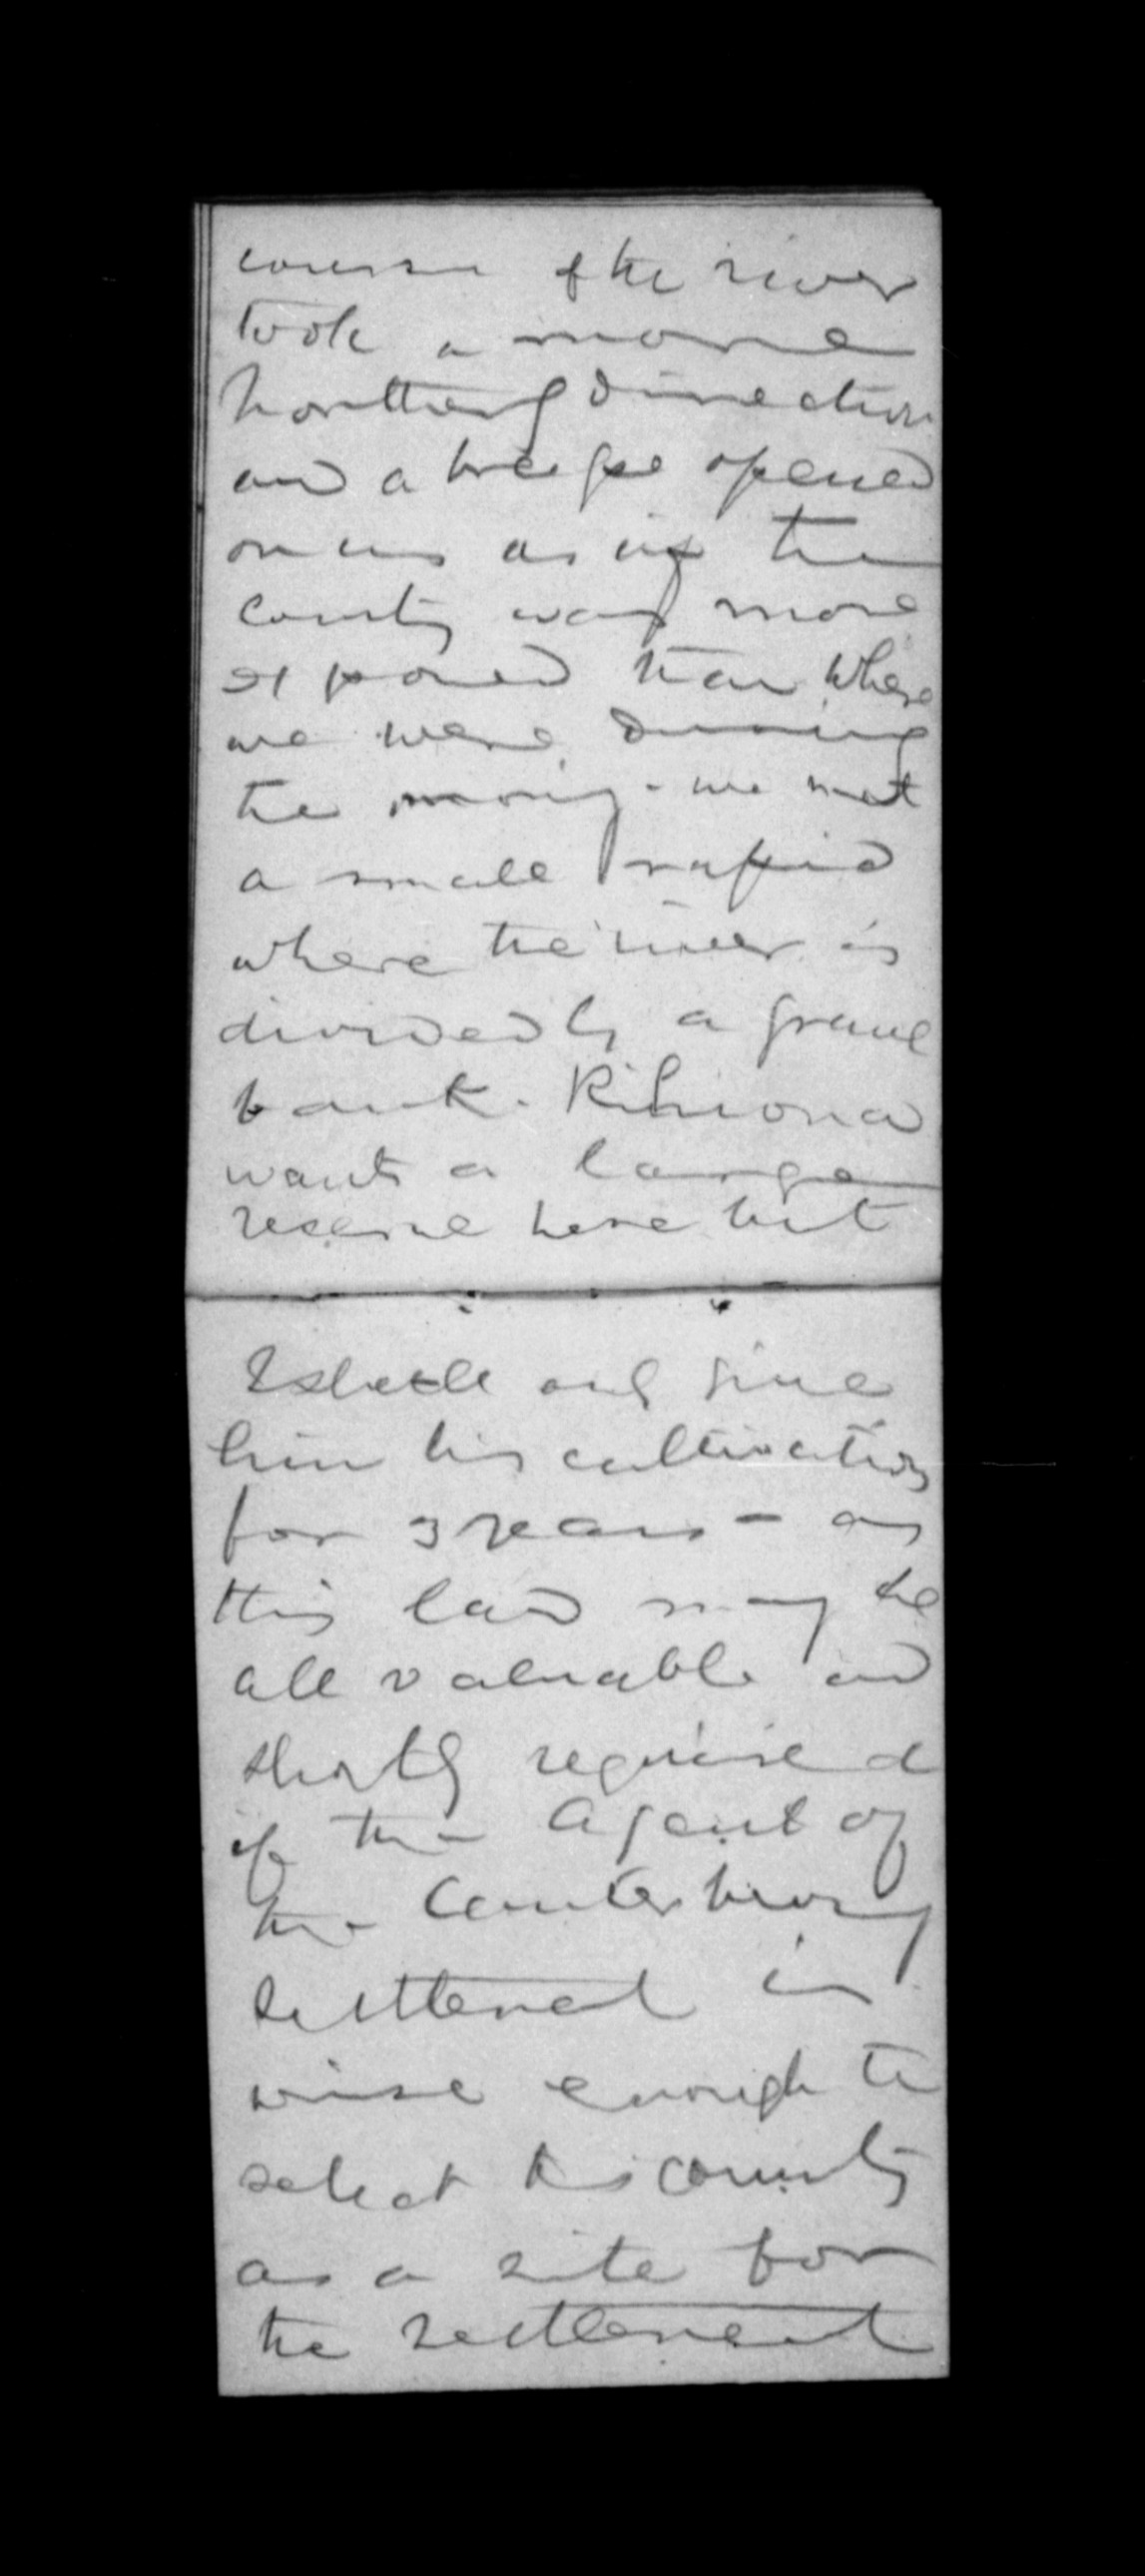 course of the river
took a more
northerly direction
and a breeze opened
on us as if the
country was more
exposed than where
we were during
the morning - we met
a small rapid
where the river is
divided by a gravel
bank. Rihiona
wants a large
reserve here but
I shall only give
him his cultivation
for 3 years - as
this land may be
all valuable and
shortly required
if the Agent of
the Canterbury
settlement is
wise enough to
select this country
as a site for
the settlement